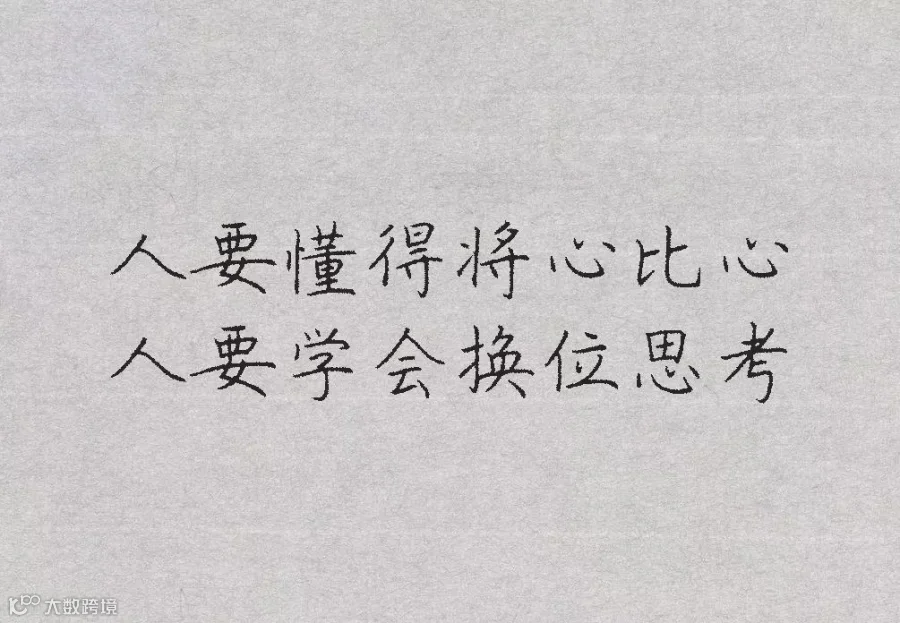 人要懂得将心比心
人要学会换位思考
大数跨境